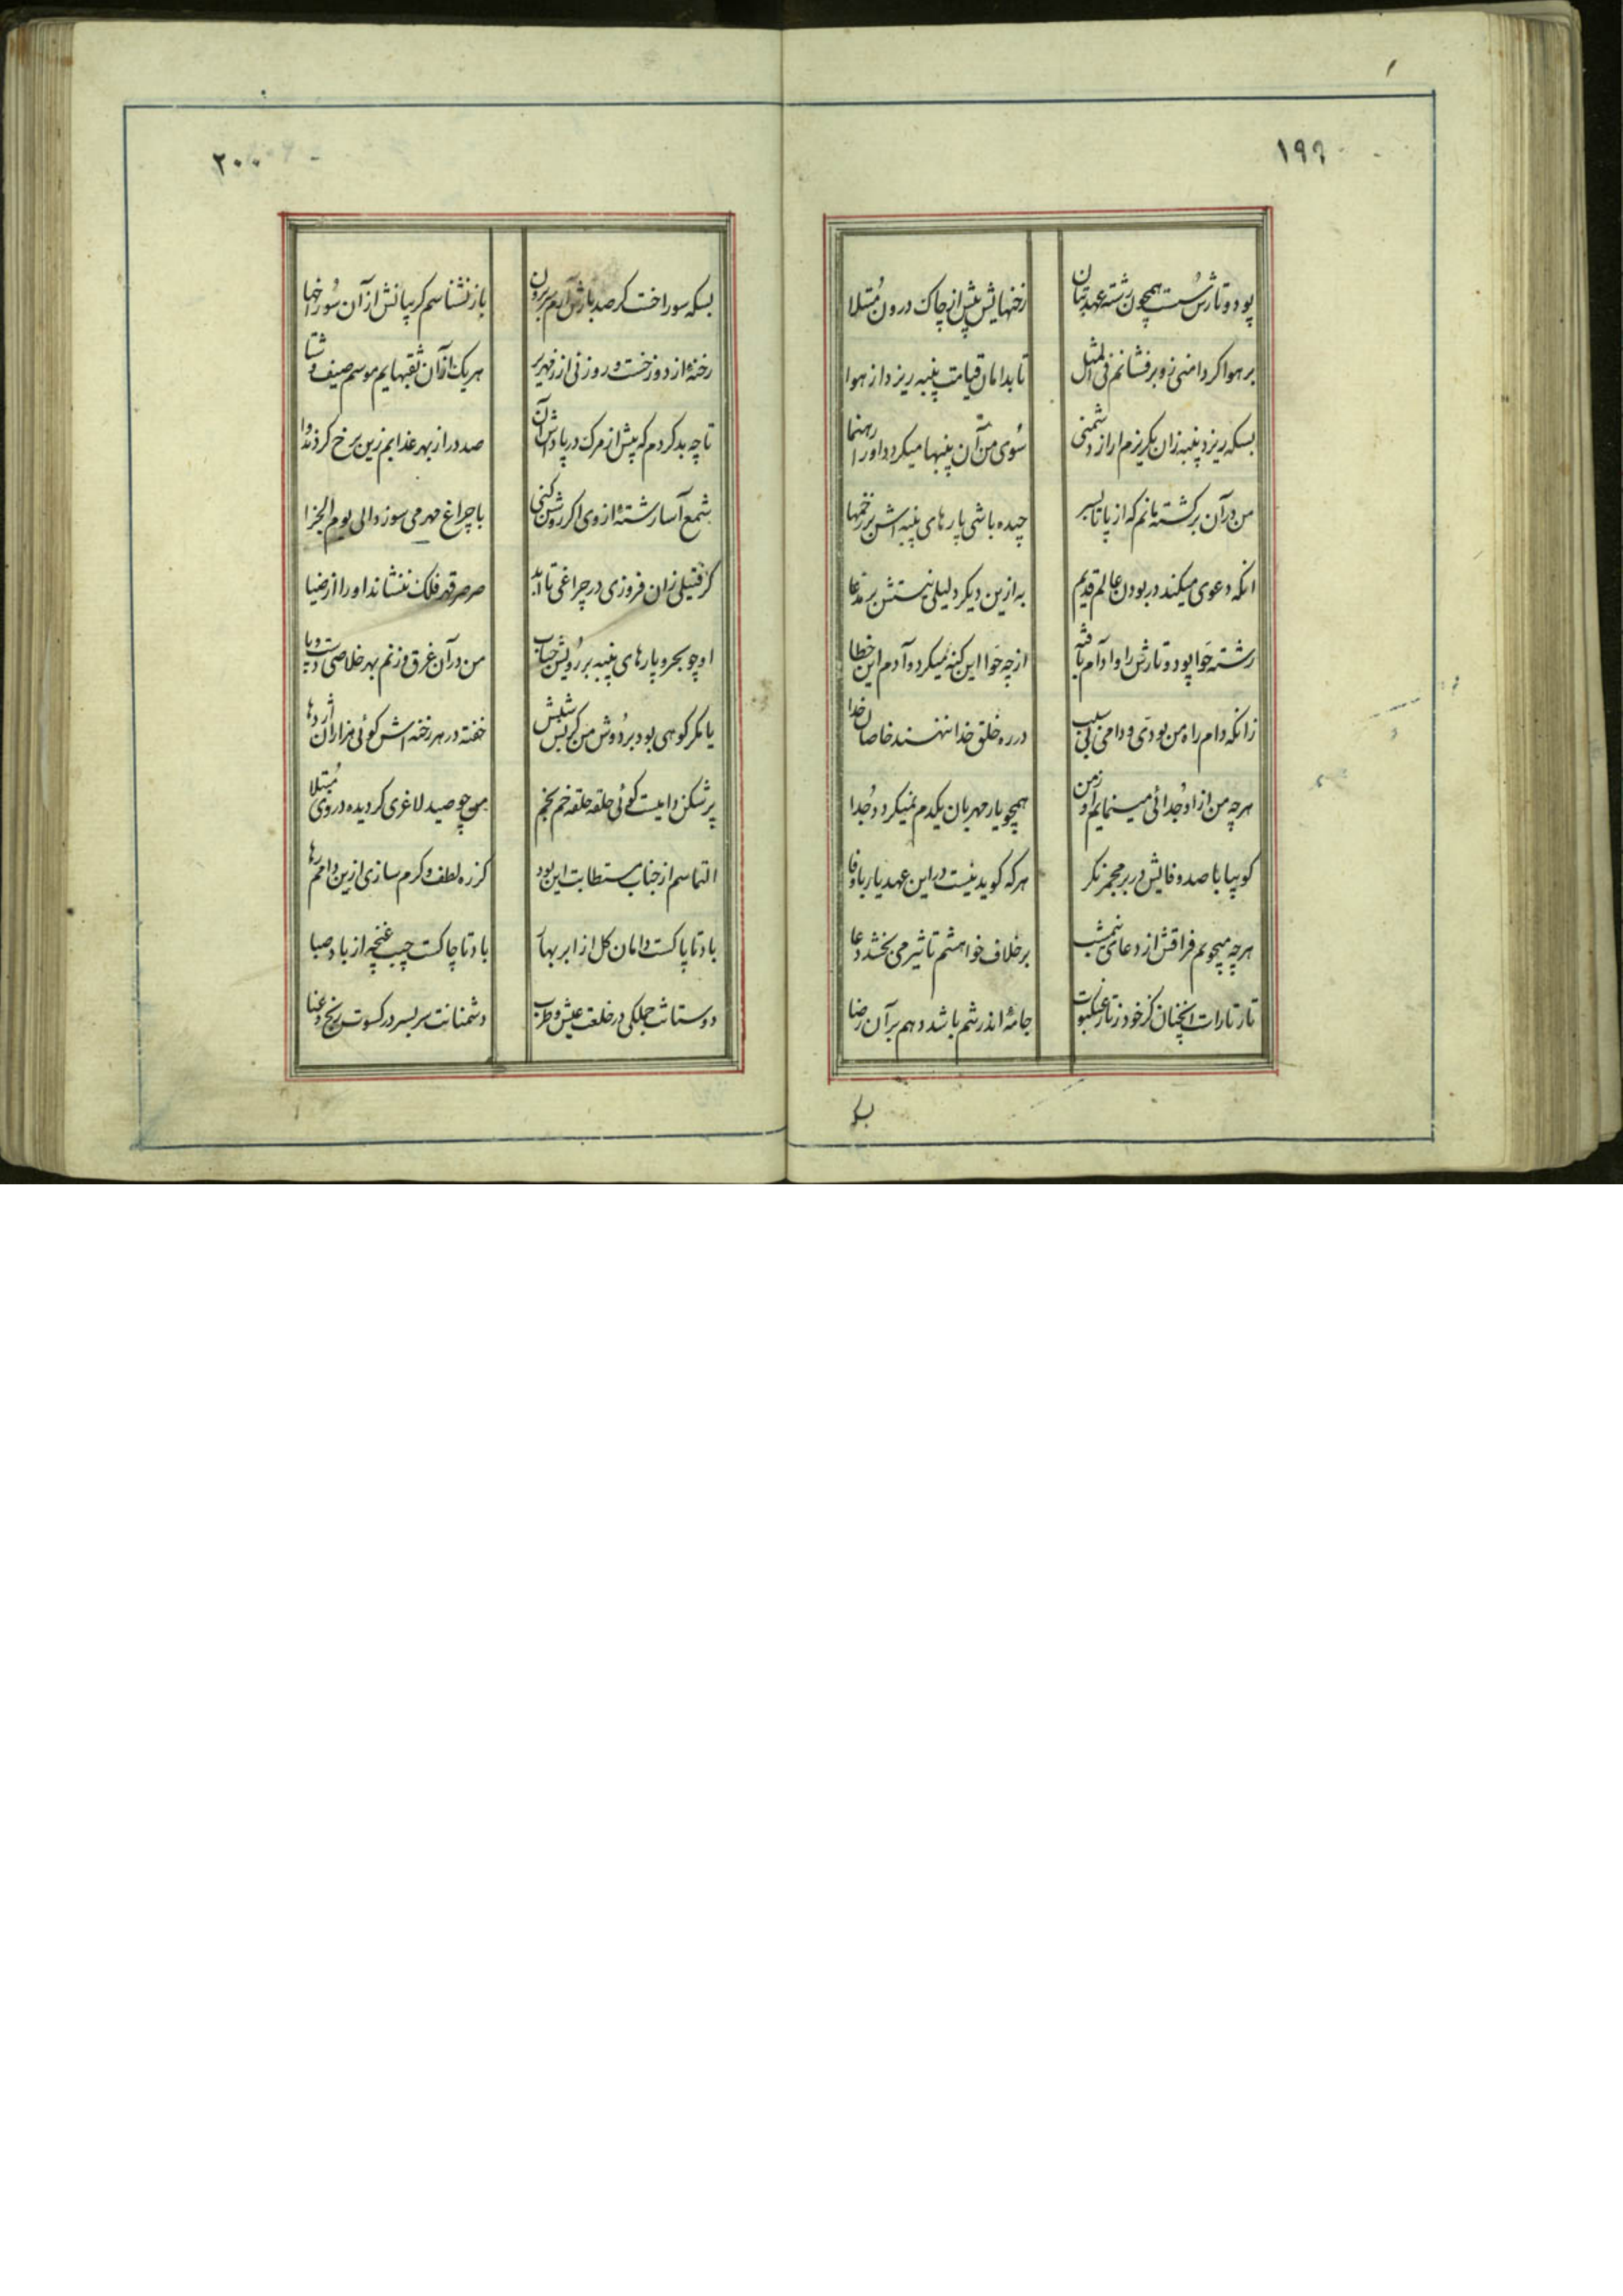 ۱۹۹
پود و تارش سست همچون رشته عهد بتان
زخنهایش بیش از چاک درون مبتلا
بر هوا کر دامنی زو برفشانم فی المثل
تا بدامان قیامت پنبه ریزد از هوا
بسکه ریزد پنبه زان بکریزم ار از دشمنی
سوی من آن پنبها میکردد او را رهنما
من در آن برکشته مانم که از پا تا بسر
چیده باشی پارهای پنبه اش بر زخمها
انکه دعوی میکند در بودن عالم قدیم
به ازین دیکر دلیلی نیستش بر مدعا
رشته حوا پود و تارش را و آدام بافته
از چه حوا این کنه میکرد و آدم این خطا
زانکه دام راه من بودی و دامی بی سبب
در ره خلق خدا ننهند خاصان خدا
هرچه من از او جدائی مینمایم او ز من
همچو یار مهربان یکدم نمیکردد جدا
کو بیا با صد وفایش در بر مجمر نکر
هرکه کوید نیست در این عهد یار باوفا
هرچه میجویم فراقش از دعای نیمشب
بر خلاف خواهشم تاثیر می بخشد دعا
تار تارات انچنان کز خود ز تار عنکبوت
جامهٔ اندر شم باشد وهم بر آن رضا
بسکه
۲۰۰
بسکه سوراخست کر صد بارش آرم سر برون
باز نشناسم کریبانش از آن سوراخها
رخنهٔ از دوزخست و روزنی از زمهریر
هریک از آن ثقبهایم موسم صیف و شتا
تا چه بد کردم که پیش از مرک در پاداش آن
صد در از بهر عذابم زین برخ کردند وا
شمع آسا رشتهٔ از وی اکر روشن کنی
با چراغ مهر می سوزد الی یوم الجزا
کر فتیلی زان فروزی در چراغی تا ابد
صرصر قهر فلک ننشاند او را از ضیا
او چو بحر و پارهای پنبه بر رویش حباب
من در آن غرق و زنم بهر خلاصی دست و پا
یا مکر کوهی بود بر دوش من کز بس شپش
خفته در هر رخنه اش کوئی هزاران اژدها
پر شکن دامیست کوئی حلقه حلقه خم بخم
من چو صید لاغری کردیده در وی مبتلا
التماسم از جناب مستطابت این بود
کز ره لطف و کرم سازی ازین دامم رها
باد تا پاکست دامان کل از ابر بهار
باد تا چاکست جیب غنچه از باد صبا
دوستانت جملکی در خلعت عیش و طرب
دشمنانت سربسر در کسوت رنج و عنا